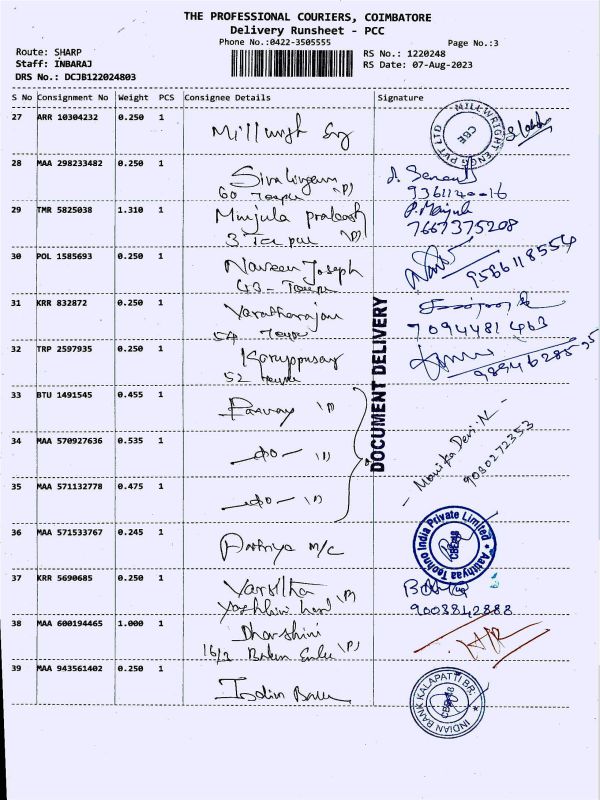 THE PROFESSIONAL COURIERS, COIMBATORE
Delivery Runsheet - PCC
Phone No.:0422-3505555
Page No.:3
Route: SHARP
RS No.: 1220248
Staff: INBARAJ
RS Date: 07-Aug-2023
DRS No.: DCJB122024803
S No Consignment No Weight PCS Consignee Details Signature
27 ARR 10304232 0.250 1
MILLWRIGHT ENGG PVT LTD
CBE
28 MAA 298233482 0.250 1 Sivalingam
60
9361140016
29 TMR 5825038 1.310 1 Minjula prakash
3
7667375208
30 POL 1585693 0.250 1 Naveen Joseph
43-
9566118554
31 KRR 832872 0.250 1 Varatharajan
54
7094481463
32 TRP 2597935 0.250 1 Karuppusamy
52
DOCUMENT DELIVERY
33 BTU 1491545 0.455 1
34 MAA 570927636 0.535 1 -do-
Monika Devi.N -
9080272353
35 MAA 571132778 0.475 1 -do-
36 MAA 571533767 0.245 1 M/C
Aatithyaa Techno India Private Limited
37 KRR 5690685 0.250 1
9003842888
38 MAA 600194465 1.000 1 Dharshini
16/2
39 MAA 943561402 0.250 1 Indian Bank
INDIAN BANK KALAPATTI BR.